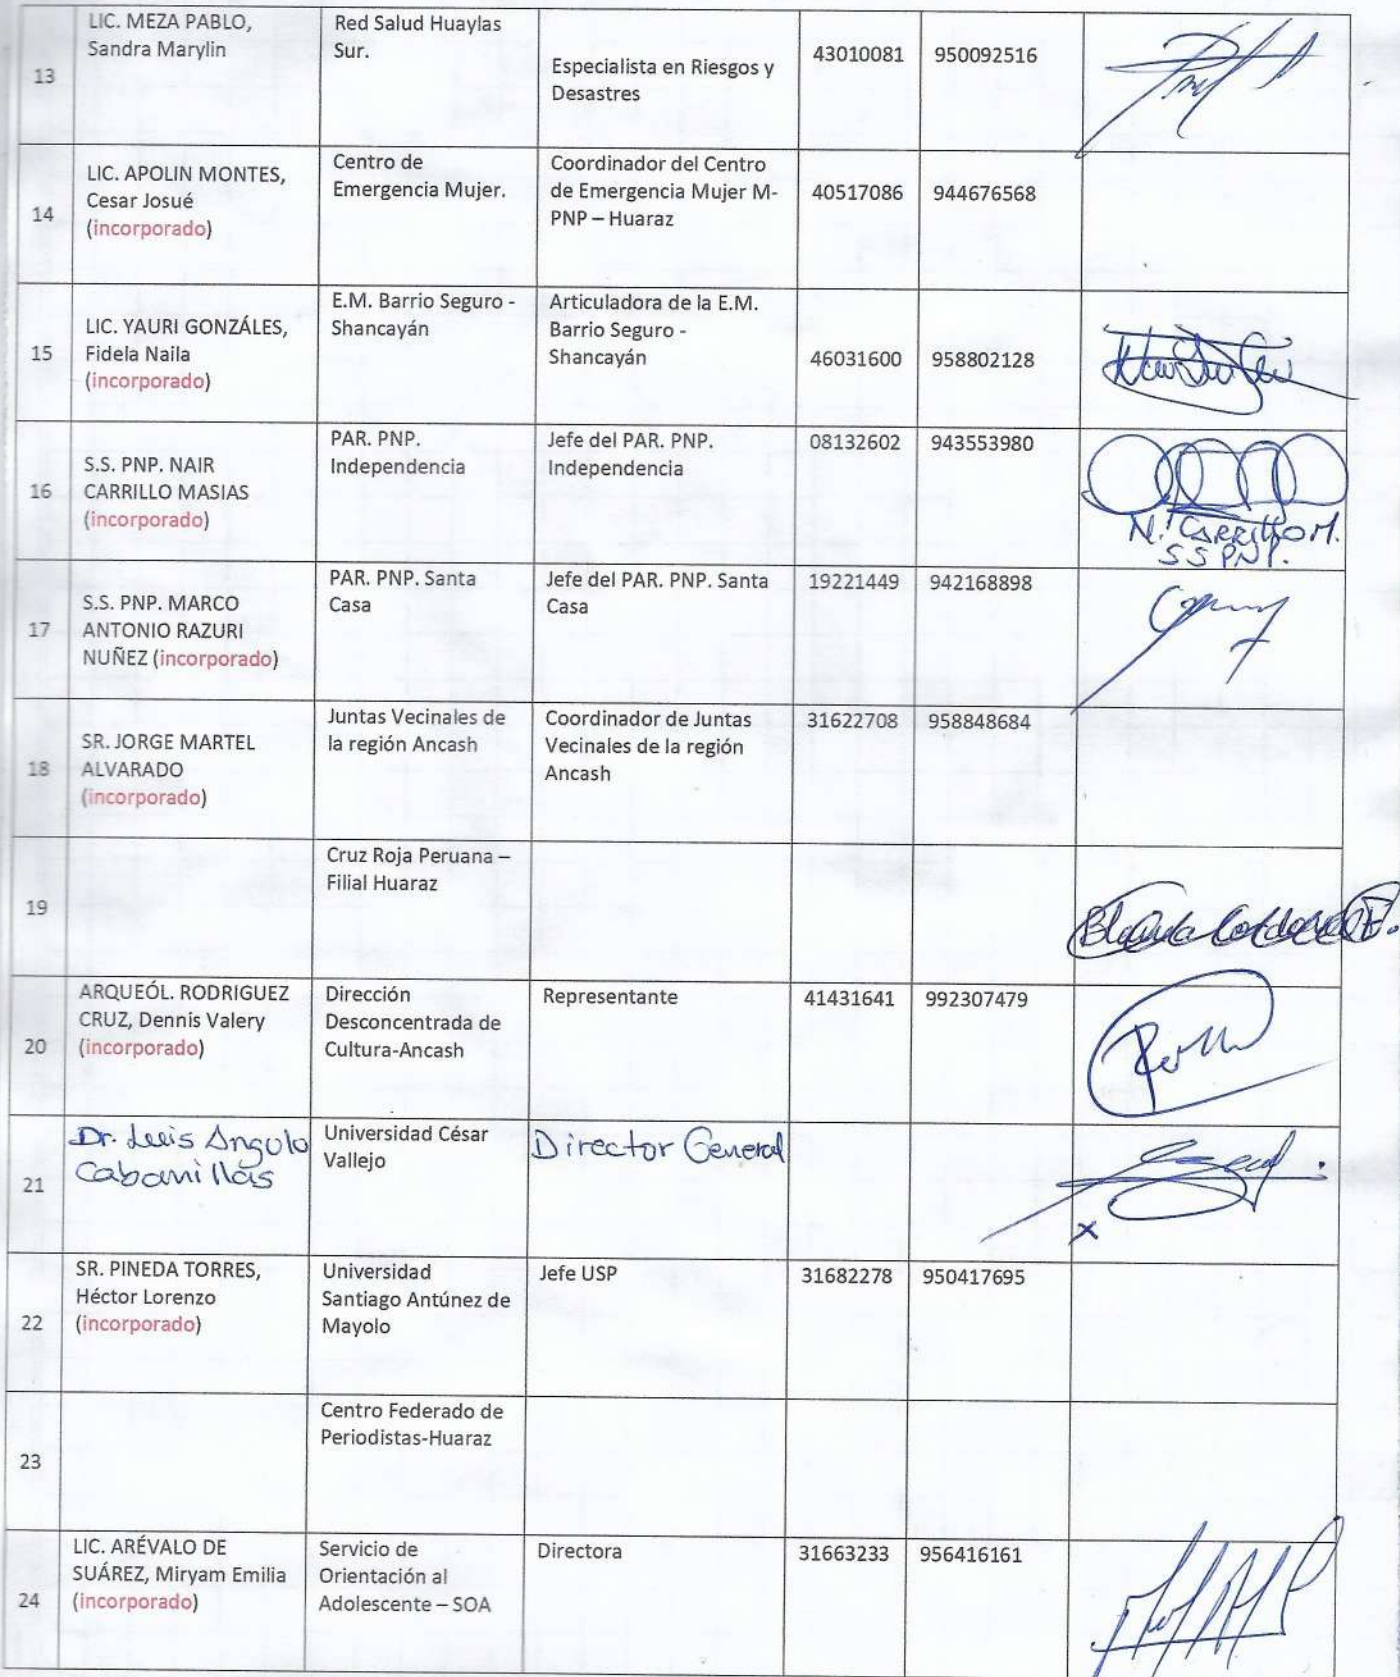 13
LIC. MEZA PABLO,
Sandra Marylin
Red Salud Huaylas
Sur.
Especialista en Riesgos y
Desastres
43010081
950092516
14
LIC. APOLIN MONTES,
Cesar Josué
(incorporado)
Centro de
Emergencia Mujer.
Coordinador del Centro
de Emergencia Mujer M-
PNP – Huaraz
40517086
944676568
15
LIC. YAURI GONZÁLES,
Fidela Naila
(incorporado)
E.M. Barrio Seguro -
Shancayán
Articuladora de la E.M.
Barrio Seguro -
Shancayán
46031600
958802128
16
S.S. PNP. NAIR
CARRILLO MASIAS
(incorporado)
PAR. PNP.
Independencia
Jefe del PAR. PNP.
Independencia
08132602
943553980
N. CARRILLO M.
SS PNP.
17
S.S. PNP. MARCO
ANTONIO RAZURI
NUÑEZ (incorporado)
PAR. PNP. Santa
Casa
Jefe del PAR. PNP. Santa
Casa
19221449
942168898
18
SR. JORGE MARTEL
ALVARADO
(incorporado)
Juntas Vecinales de
la región Ancash
Coordinador de Juntas
Vecinales de la región
Ancash
31622708
958848684
19
Cruz Roja Peruana –
Filial Huaraz
20
ARQUEÓL. RODRIGUEZ
CRUZ, Dennis Valery
(incorporado)
Dirección
Desconcentrada de
Cultura-Ancash
Representante
41431641
992307479
21
Dr. Luis Angulo
Cabanillas
Universidad César
Vallejo
Director General
x
22
SR. PINEDA TORRES,
Héctor Lorenzo
(incorporado)
Universidad
Santiago Antúnez de
Mayolo
Jefe USP
31682278
950417695
23
Centro Federado de
Periodistas-Huaraz
24
LIC. ARÉVALO DE
SUÁREZ, Miryam Emilia
(incorporado)
Servicio de
Orientación al
Adolescente – SOA
Directora
31663233
956416161